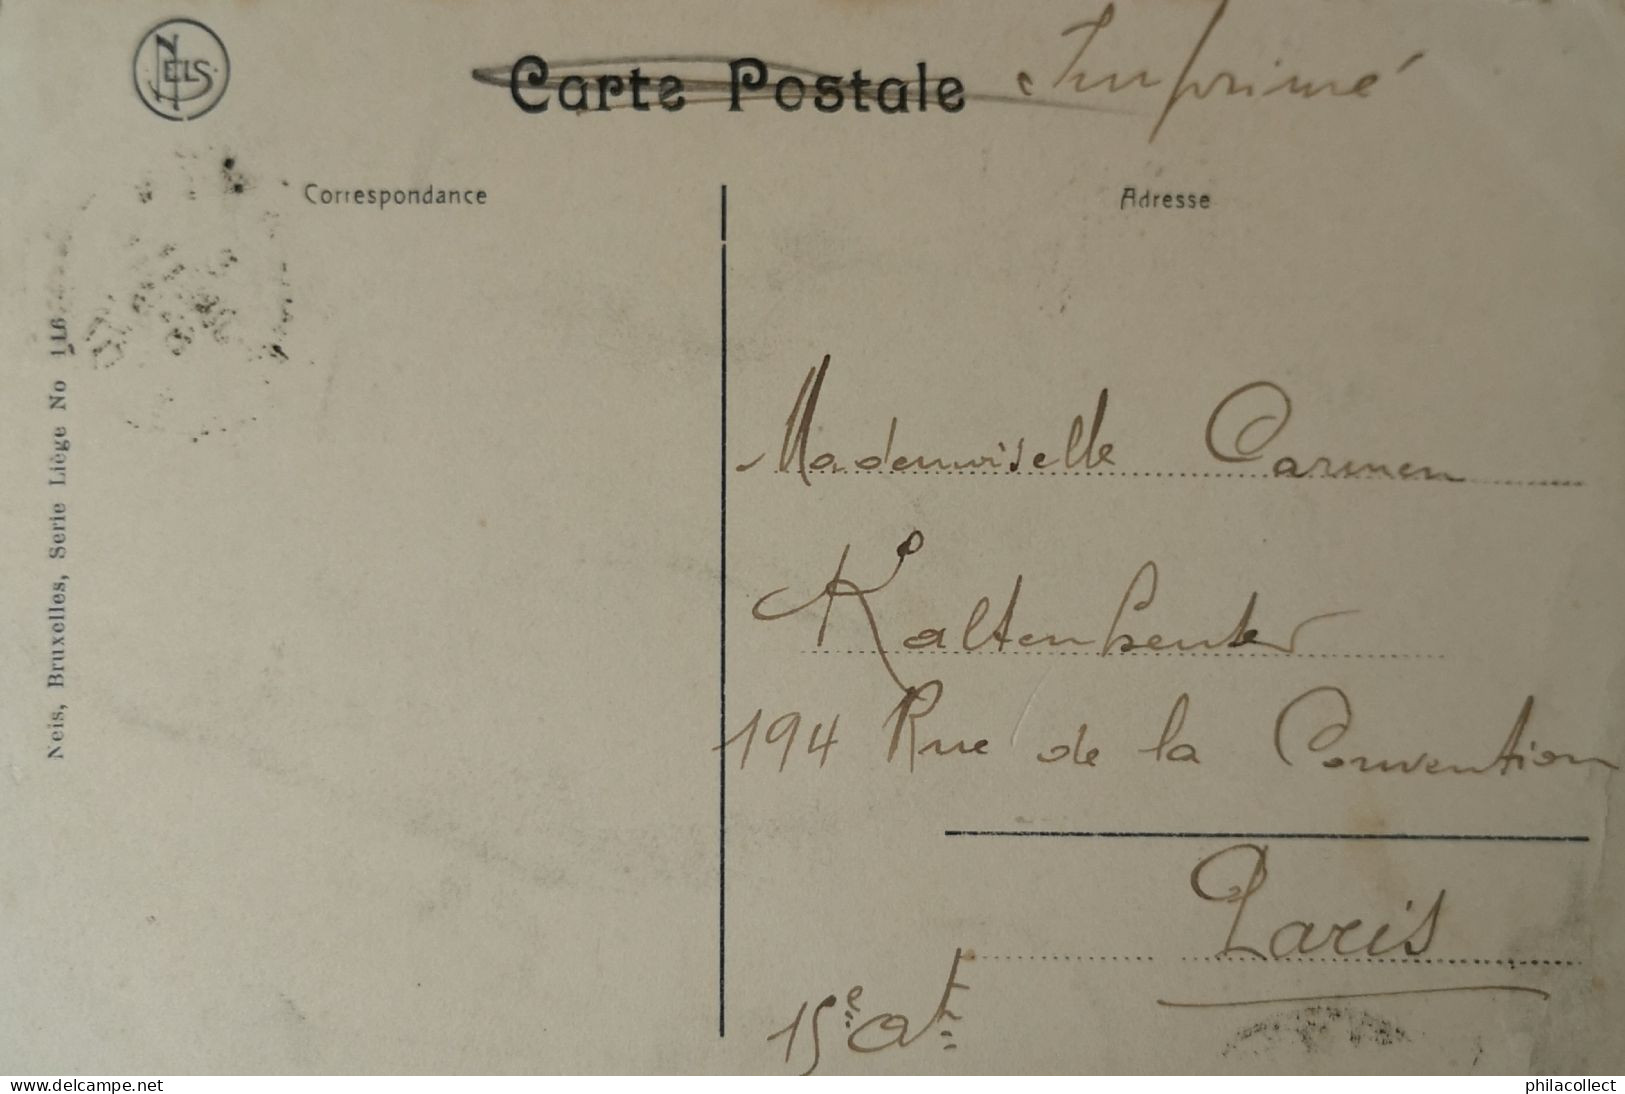 NELS
Carte Postale Imprimé
Correspondance
Adresse
Nels, Bruxelles, Serie Liège No 116
Mademoiselle Carmen
Kaltenbenter
194 Rue de la Convention
Paris
15e At
www.delcampe.net
philacollect